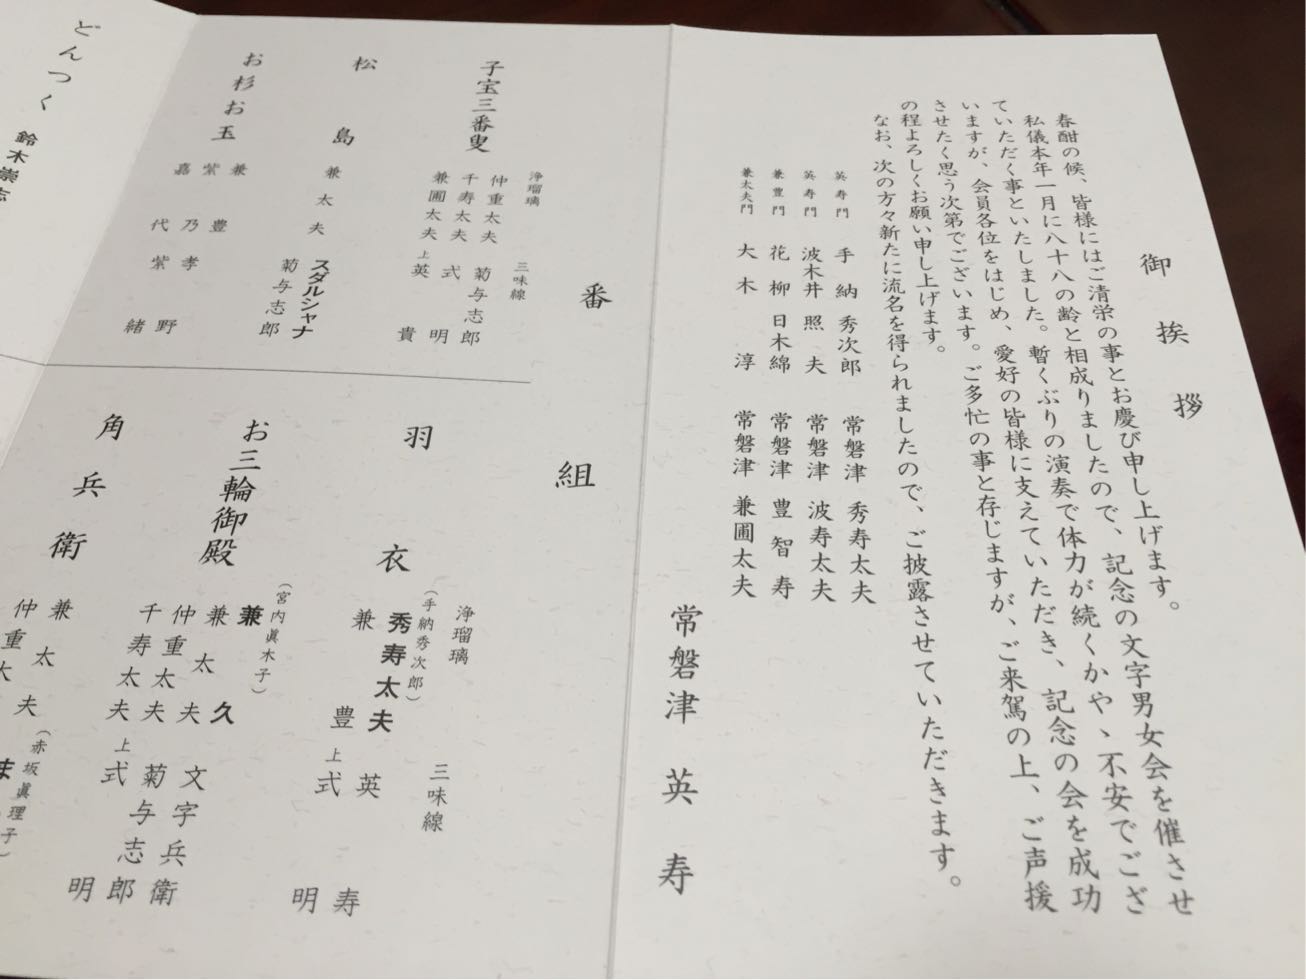 御挨拶
春酣の候、皆様にはご清栄の事とお慶び申し上げます。
私儀本年一月に八十八の齢と相成りましたので、記念の文字男女会を催させ
ていただく事といたしました。暫くぶりの演奏で体力が続くかやゝ不安でござ
いますが、会員各位をはじめ、愛好の皆様に支えていただき、記念の会を成功
させたく思う次第でございます。ご多忙の事と存じますが、ご来駕の上、ご声援
の程よろしくお願い申し上げます。
なお、次の方々新たに流名を得られましたので、ご披露させていただきます。
英寿門 手納秀次郎 常磐津 秀寿太夫
英寿門 波木井照夫 常磐津 波寿太夫
兼豊門 花柳日木綿 常磐津 豊智寿
兼太夫門 大木淳 常磐津 兼圃太夫
常磐津英寿
番組
子宝三番叟
浄瑠璃 三味線
仲重太夫 菊与志郎
千寿太夫 式明
兼圃太夫 上英貴
松島
スダルシャナ
兼太夫 菊与志郎
お杉お玉
兼豊 孝野
紫乃 紫緒
嘉代
どんつく
鈴木崇志
羽衣
浄瑠璃 三味線
(手納秀次郎)
秀寿太夫 英寿
兼豊 上式明
お三輪御殿
(宮内眞木子)
兼久
兼太夫 文字兵衛
仲重太夫 菊与志郎
千寿太夫 上式明
角兵衛
兼太夫
(赤坂眞理子)
仲重太夫
ま